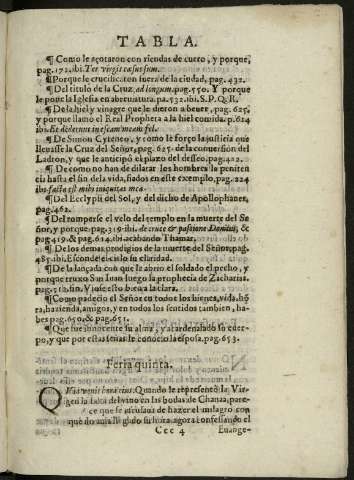 TABLA.
¶ Como le açotaron con riendas de cuero, y porque,
pag. 172. ibi. Ter virgis cæsus sum.
¶ Porque le crucificaron fuera de la ciudad, pag. 432.
¶ Del titulo de la Cruz, ad longum. pag. 550. Y porque
le pone la Iglesia en abreuiatura. pa. 532. ibi. S. P. Q. R.
¶ De la hiel y vinagre que le dieron a beuer, pag. 625.
y porque llamo el Real Propheta a la hiel comida. p. 614
ibi. Et dederunt in escam meam fel.
¶ De Simon Cyreneo, y como le forço la justicia que
lleuasse la Cruz del Señor, pag. 625. de la conuersion del
Ladron, y que le anticipó el plazo del desseo. pag. 422.
¶ De como no han de dilatar los hombres la peniten
cia hasta el fin de la vida, fiados en este exemplo, pag. 224
ibi. facta est mihi iniquitas mea.
¶ Del Ecclypsi del Sol, y del dicho de Apollophanes,
pag. 462.
¶ Del romperse el velo del templo en la muerte del Se
ñor, y porque. pag. 319. ibi. de cruce & passione Domini, &
pag 419. & pag. 614. ibi acabando Thamar.
¶ De los demas prodigios de la muerte del Señor, pag.
485. Esconde el cielo su claridad.
¶ De la lançada con que le abrio el soldado el pecho, y
porque truxo San Iuan luego la prophecia de Zacharias.
pag. Y si fue esto bien a la clara.
¶ Como padecio el Señor en todos los bienes, vida, hó
ra, hazienda, amigos, y en todos los sentidos tambien, ha-
bes pag. 650. & pag. 651.
¶ Que fue innocente su alma, y atardenalado su cuer-
po, y que por estas señas le conocio la esposa. pag. 653.
Feria quinta.
Quando le representó la Vir-
gen la falta del vino en las bodas de Chanaa, pare-
ce que se escusaua de hazer el milagro con
que no auia llegado su hora. agora confessando el
Ccc 4 Euange-